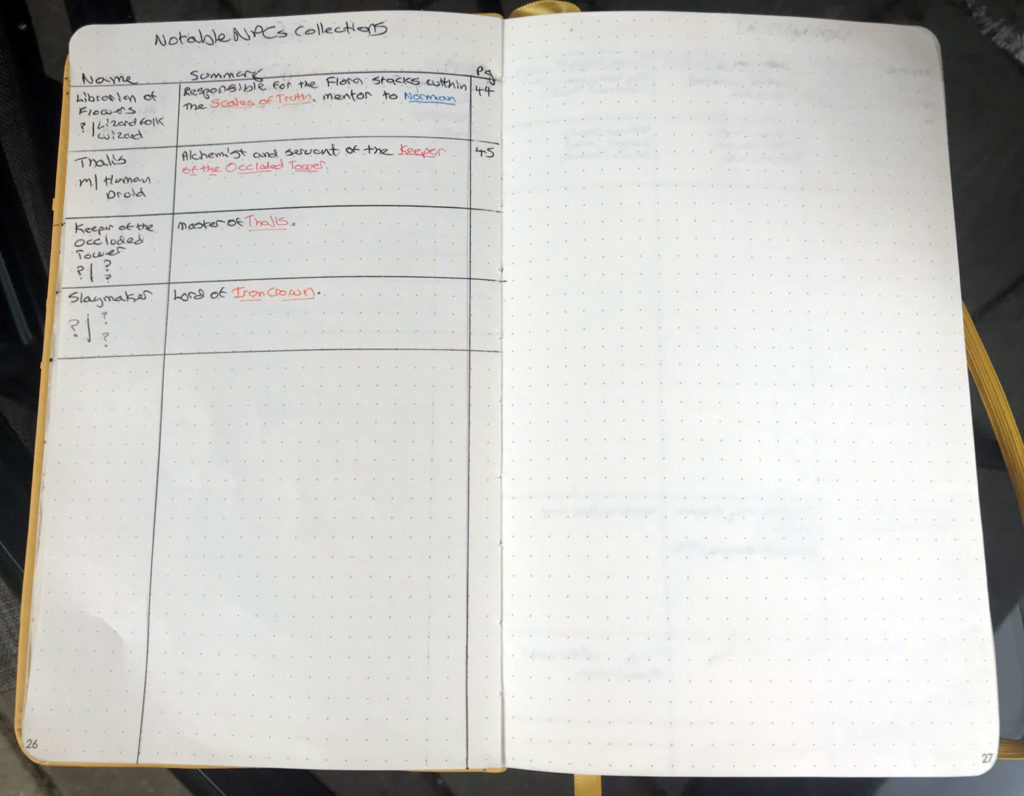 Notable NPCs Collections
Name Summary Pg
Librarian of Responsible for the Flora Stacks within 44
Flowers the Scales of Truth. mentor to Norman
? | Lizard folk
Wizard
Thalis Alchemist and servant of the Keeper 45
m | Human of the Occluded Tower.
Droid
Keeper of the Master of Thalis.
Occluded
Tower
? | ?
?
Slaymaker Lord of Iron Crown.
? | ?
?
26
27